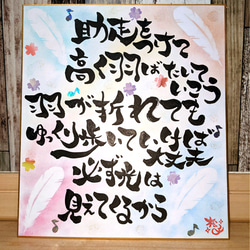 助走をつけて
高く羽ばたいて
いこう
羽が折れても
ゆっくり歩いていけば
大丈夫
必ず光は
見えてくるから